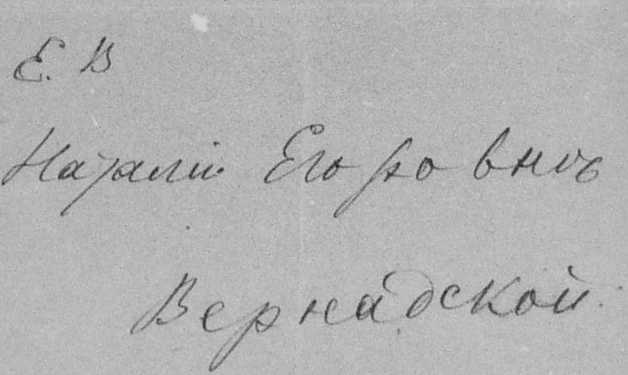 Е. В
Наталіи Егоровнѣ
Вернадской